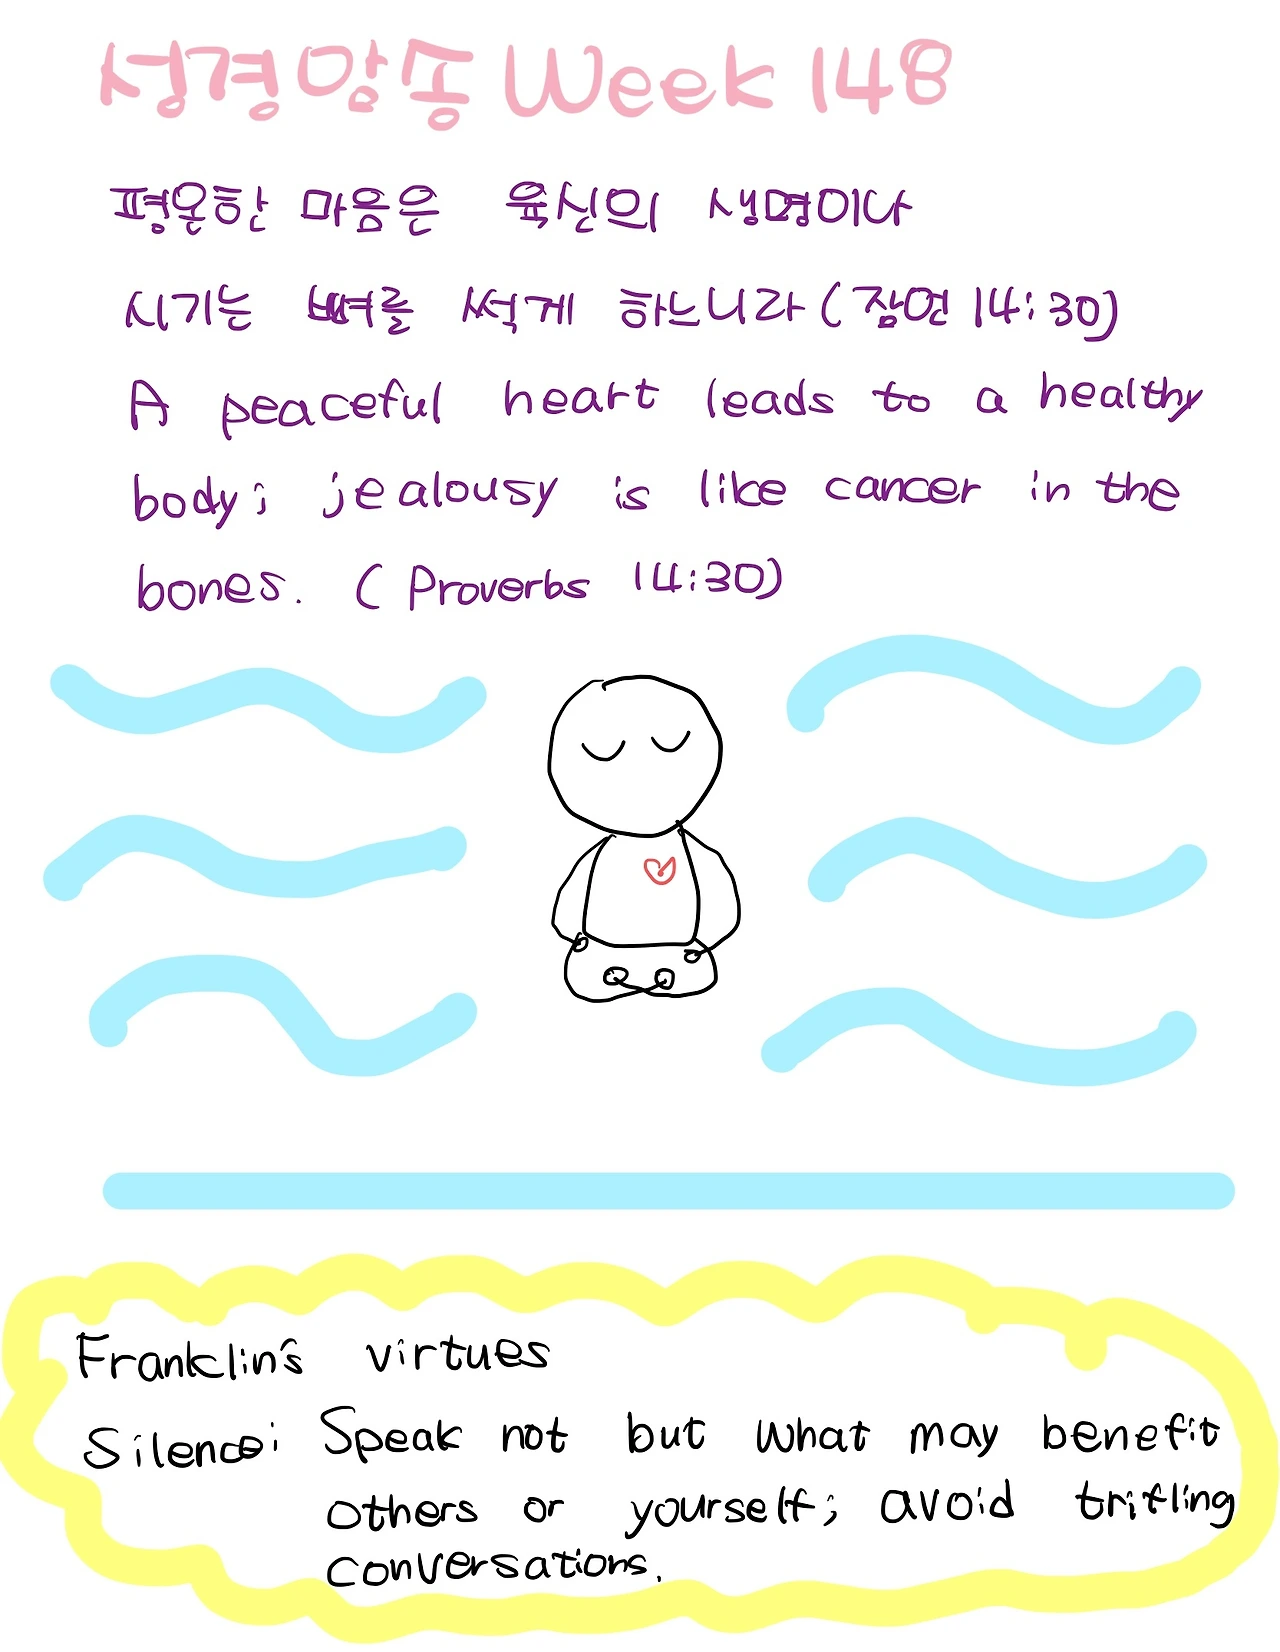 성경암송 Week 148
평온한 마음은 육신의 생명이나
시기는 뼈를 썩게 하느니라 (잠언 14:30)
A peaceful heart leads to a healthy
body; jealousy is like cancer in the
bones. (Proverbs 14:30)
Franklin's virtues
Silence: Speak not but what may benefit
others or yourself; avoid trifling
conversations.